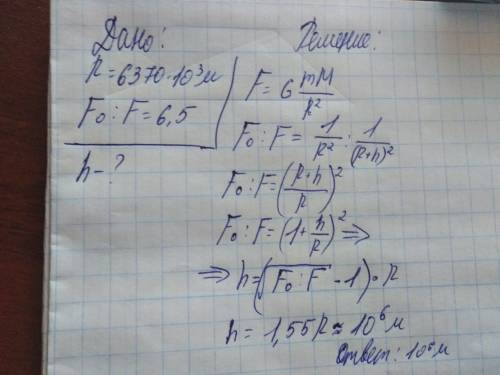 Дано:
R = 6370·10³м
F₀:F = 6,5
h - ?
Решение:
F = G mM/R²
F₀:F = 1/R² : 1/(R+h)²
F₀:F = ((R+h)/R)²
F₀:F = (1+h/R)² ⇒
⇒ h = (√(F₀:F) - 1)·R
h = 1,55R ≈ 10⁶ м
Ответ: 10⁶ м